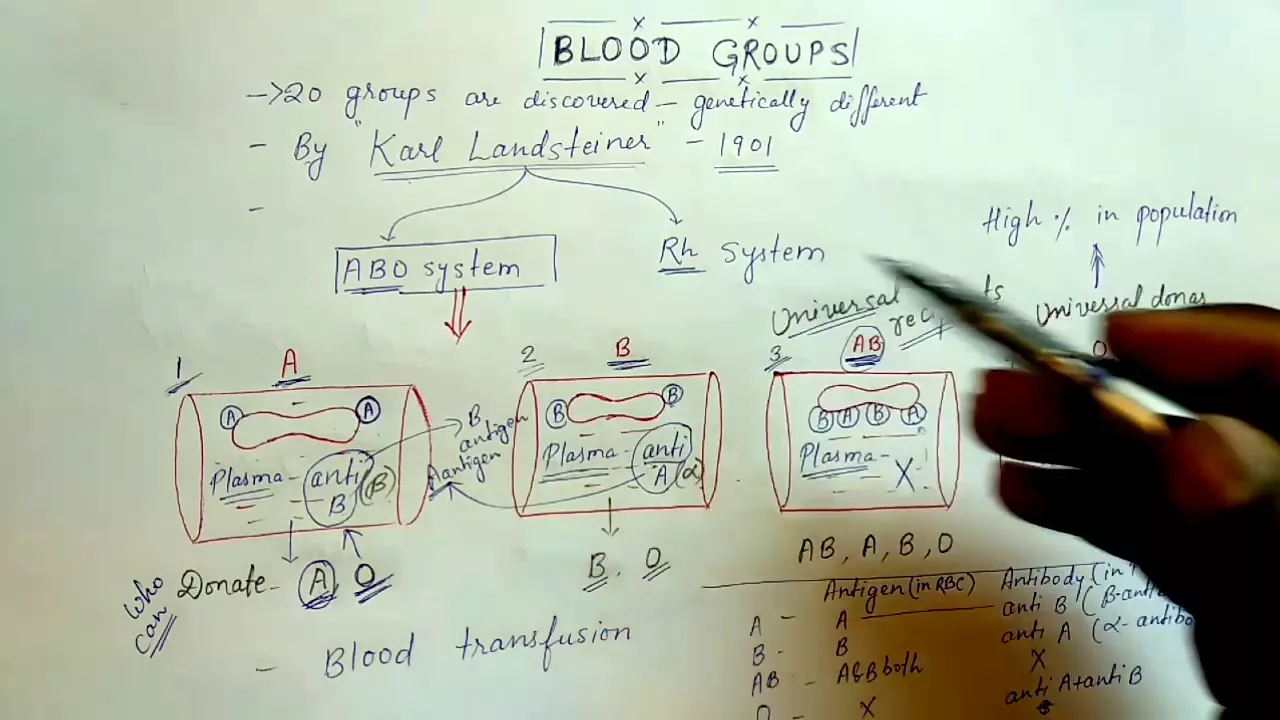 BLOOD GROUPS
->20 groups are discovered - genetically different
- By "Karl Landsteiner" - 1901
-
ABO system
Rh system
High % in population
Universal
Universal donar
1 A
2 B
3 AB
O
A A
B B
B A B A
Plasma - anti B (β)
B antigen
A antigen
Plasma - anti A (α)
Plasma - X
Who can Donate - A O
B, O
AB, A, B, O
- Blood transfusion
Antigen (in RBC) Antibody (in
A - A anti B (β-
B - B anti A (α-
AB - A&B both X
O - X anti A+anti B